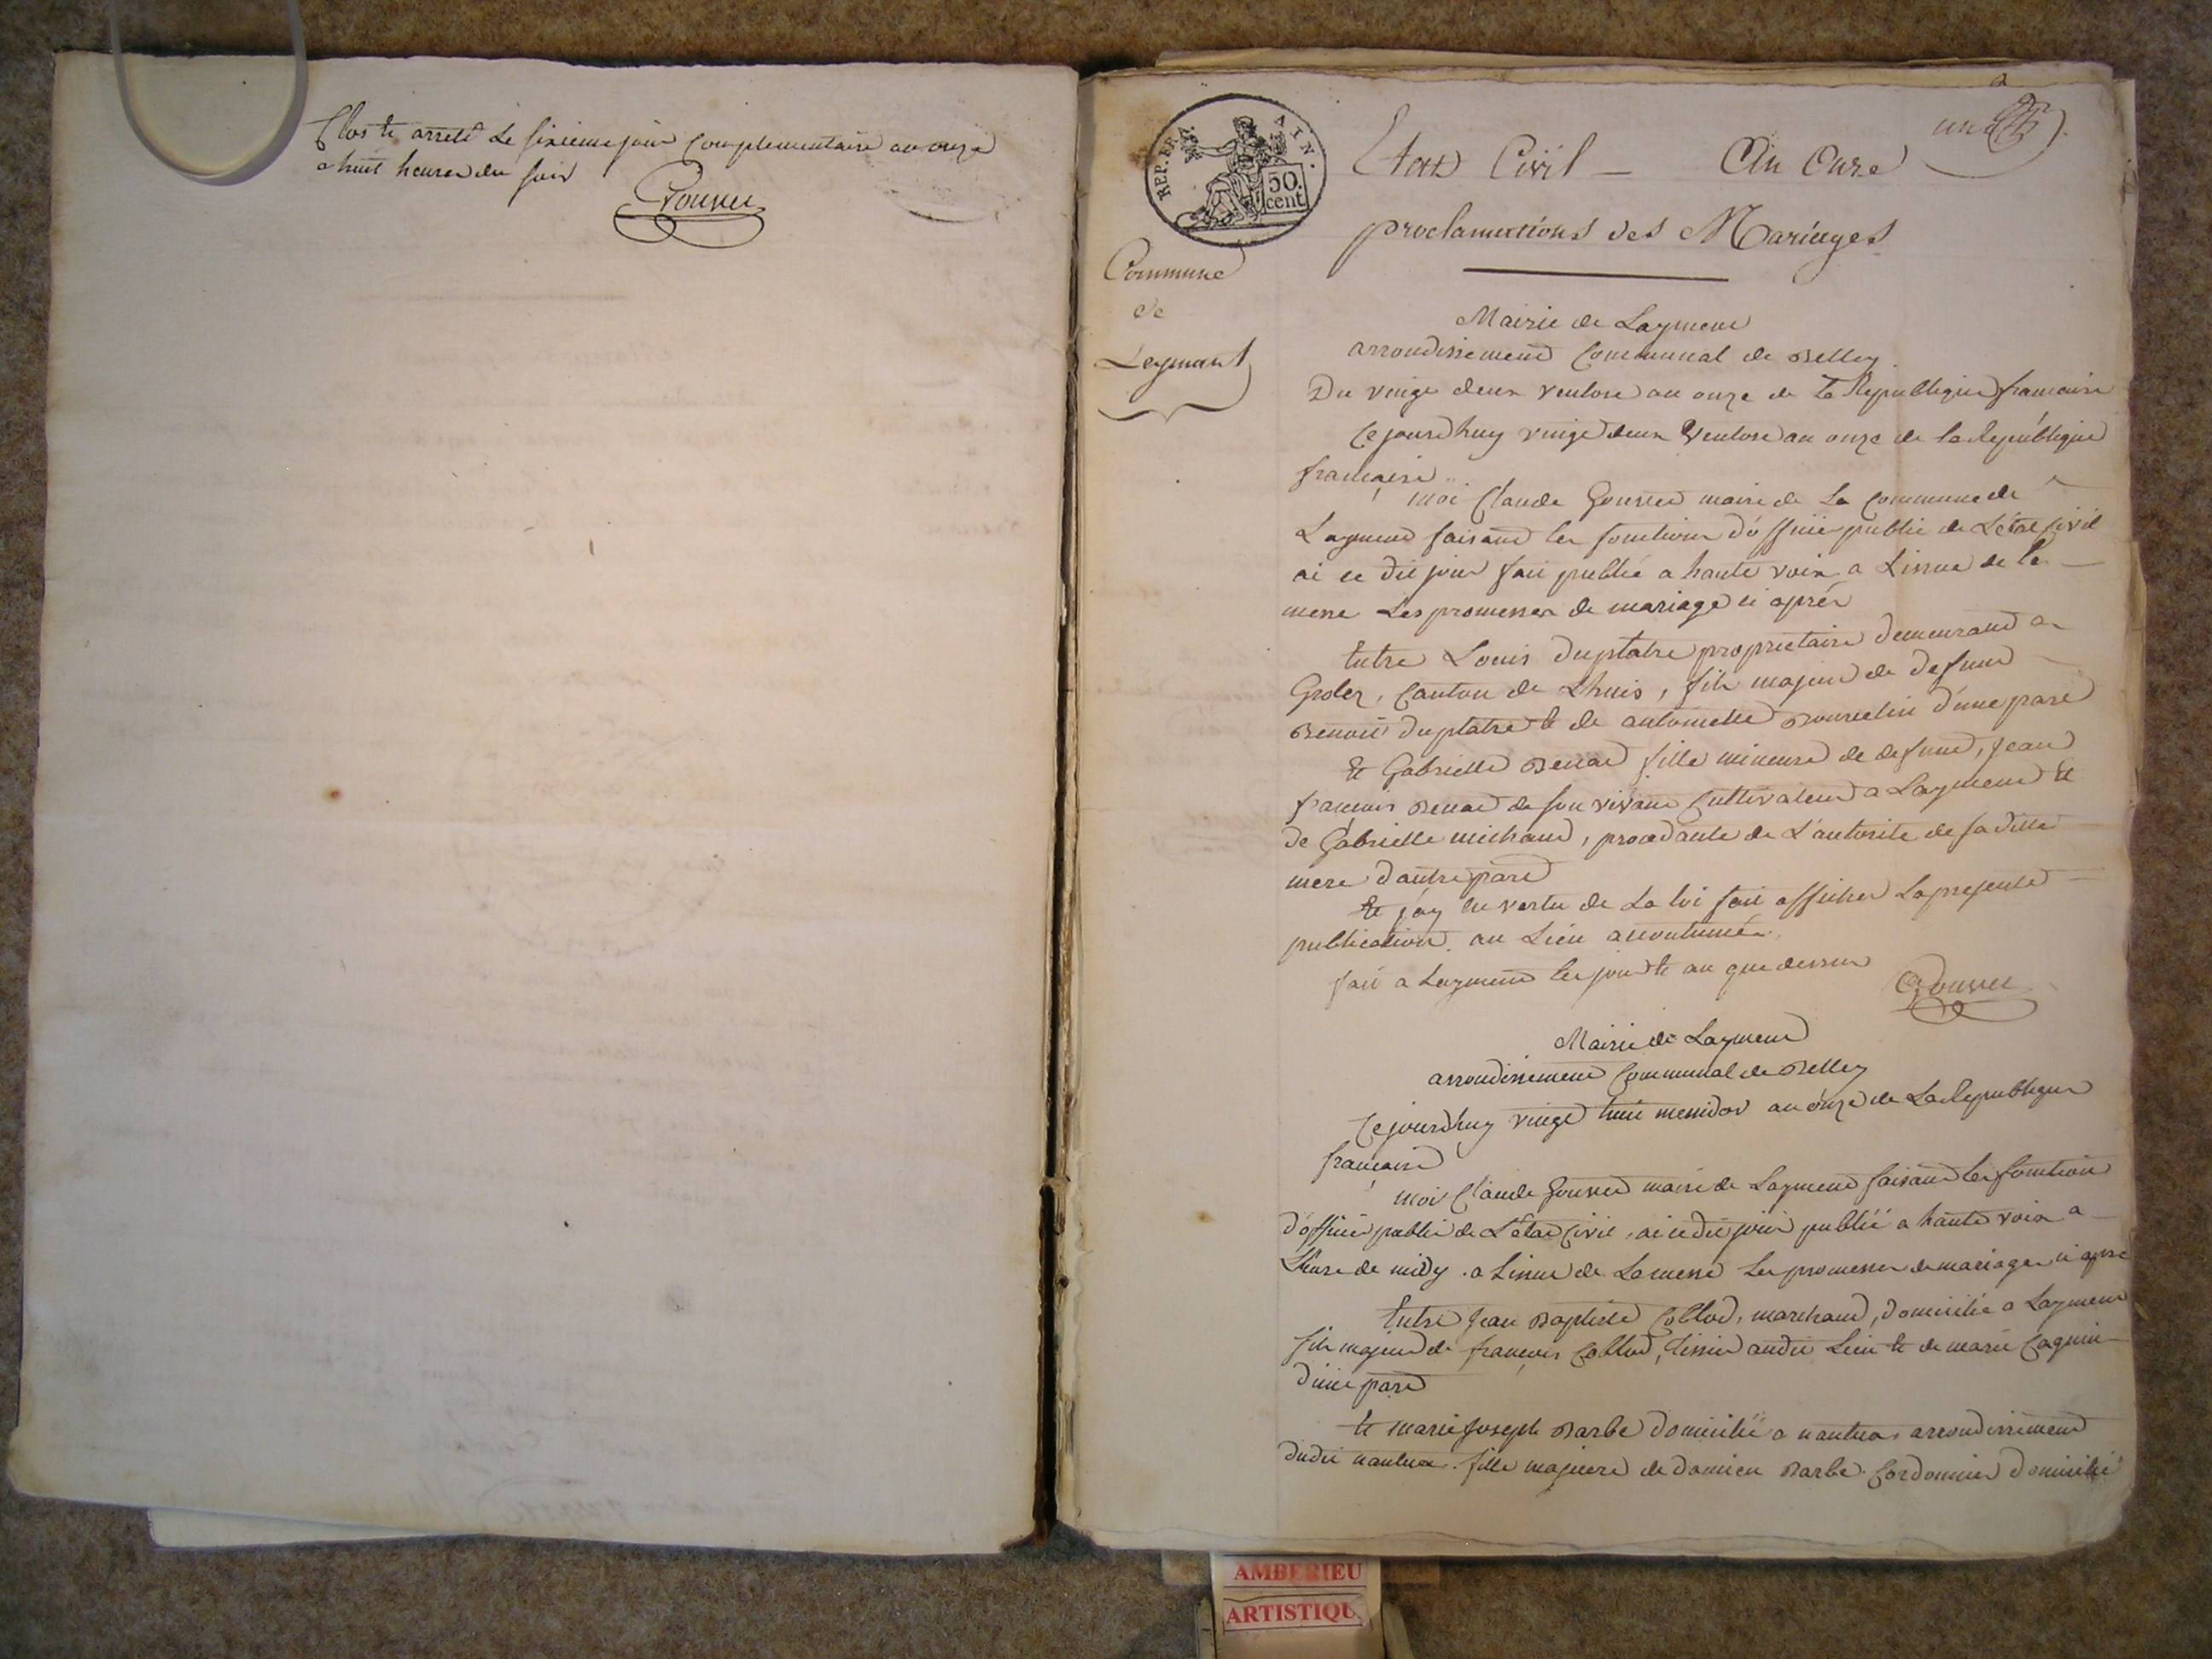 Clos et arreté Le sixieme jour Complementaire an onze
a huit heures du soir
Gouvet
REP. FRA. AIN.
50.
cent.
un
Etat Civil — An Onze
proclamations des Mariages
Commune
de
Leymant
Mairie de Laymens
arrondissement Communal de Belley
Du vingt deux ventose an onze de la Republique francaise
Cejourdhuy vingt deux Ventose an onze de la Republique
francaise
moi Claude Gouvet maire de La Commune de
Laymens faisant les fonctions d'officier public de L'etat Civil
ai ce dit jour fait publié a haute voix a L'issue de la
messe Les promesses de mariage ci après
Entre Louis Duplatre proprietaire demeurant a
Grolez, Canton de Lhuis, fils majeur de defunt
Benoit Duplatre et de antoinette d'une part
Et Gabrielle fille mineure de defunt, Jean
françois de son vivant Cultivateur a Laymens et
de Gabrielle michaud, procedante de L'autorite de sa ditte
mere d'autre part
Et j'ay en vertu de La loi fait afficher La presente
publication au Lieu accoutumée
fait a Laymens les jour et an que dessus
Gouvet
Mairie de Laymens
arrondissement Communal de Belley
Cejourdhuy vingt huit messidor an onze de La Republique
francaise
moi Claude Gouvet maire de Laymens faisant les fonction
d'officier public de L'etat Civil, ai cedit jour publié a haute voix a
L'heure de midy a L'issue de La messe Les promesses de mariages ci apres
Entre Jean Baptiste Collod, marchand, domicilié a Laymens
fils majeur de françois Collod, tissier audit Lieu et de marie
d'une part
Et marie Joseph Barbe domicilié a nantua arrondissement
dudit nantua fille majeure de damien Barbe Cordonnier domicilié
AMBERIEU
ARTISTIQU